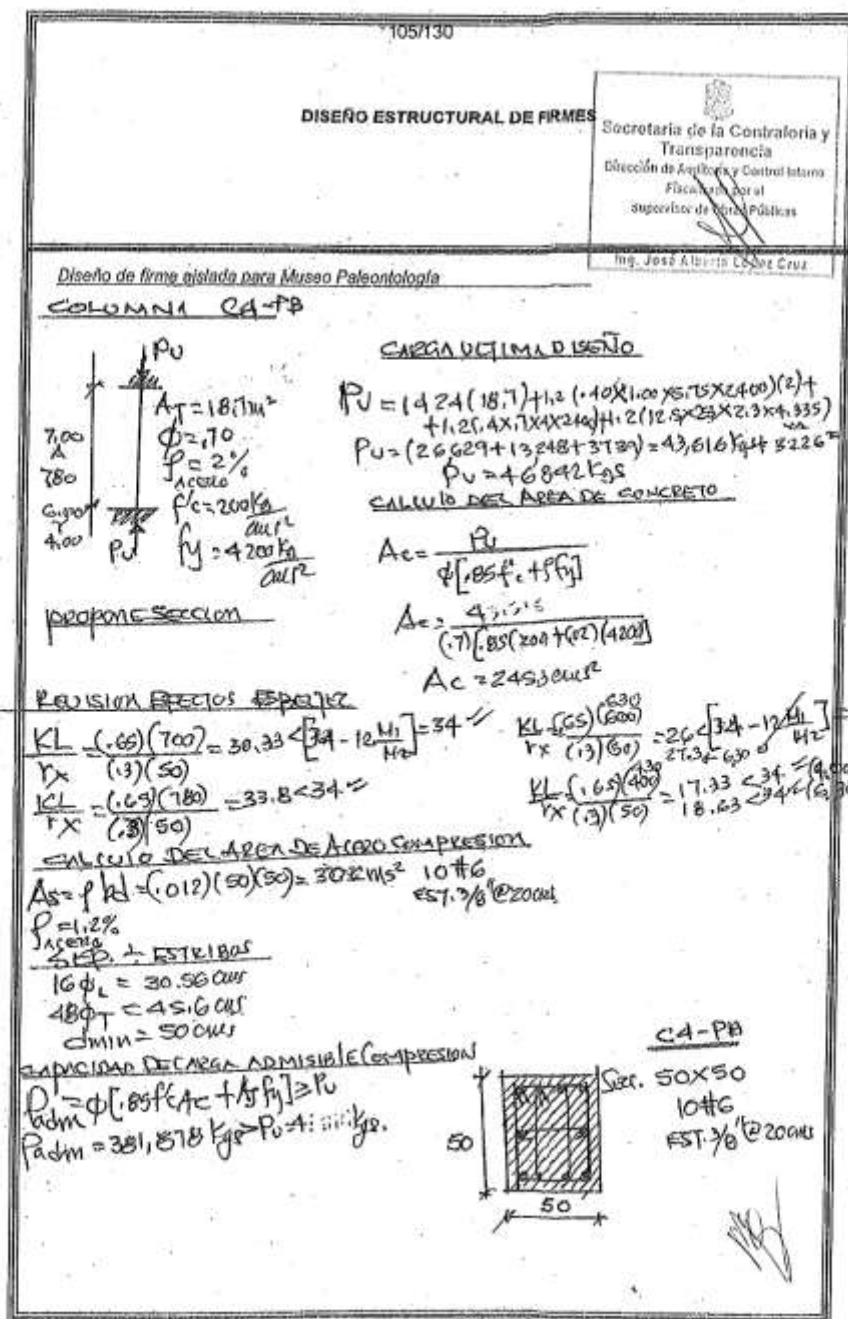 105/130
DISEÑO ESTRUCTURAL DE FIRMES
Secretaría de la Contraloría y
Transparencia
Dirección de Auditoría y Control Interno
Fiscalizado por el
Supervisor de Obras Públicas
Ing. José Alberto López Cruz
Diseño de firme aislada para Museo Paleontología
COLUMNA C4-PB
PU
AT=18.7m²
Ø=.70
ρ=2%
ACERO
f'c=200 Kg/cm²
fy=4200 Kg/cm²
7.00
A
780
4.00
PU
CARGA ULTIMA DISEÑO
PU=1424(18.7)+1.2(.40X1.00X5.75X2400)(2)+
PU=(26,629+13,248+3739)=43,616 Kgs+3226=
PU=46842 Kgs
CALCULO DEL AREA DE CONCRETO
Ac= PU / Ø[.85f'c+ρfy]
PROPONE SECCION
Ac= / (.7)[.85(200)+(.02)(4200)]
Ac=245.3 cms²
REVISION EFECTOS ESBELTEZ
KL/rx=(.65)(700)/(.3)(50)=30.33<[34-12 M1/M2]=34
KL/rx=(.65)(600)/(.3)(50)=26<[34-12 M1/M2]
630
27.3
KL/rx=(.65)(780)/(.3)(50)=33.8<34
KL/rx=(.65)(400)/(.3)(50)=17.33<34
430
18.63<34
CALCULO DEL AREA DE ACERO COMPRESION
As=ρbd=(.012)(50)(50)=30cms² 10#6
EST. 3/8"@20cms
ρ=1.2%
ACERO
SEP. ESTRIBOS
16ØL=30.56 cms
48ØT=45.6 cms
dmin=50cms
CAPACIDAD DE CARGA ADMISIBLE COMPRESION
Padm=Ø[.85f'cAc+Asfy]≥PU
Padm=381,878 Kgs>PU= Kgs.
C4-PB
Secc. 50X50
10#6
EST. 3/8"@20cms
50
50